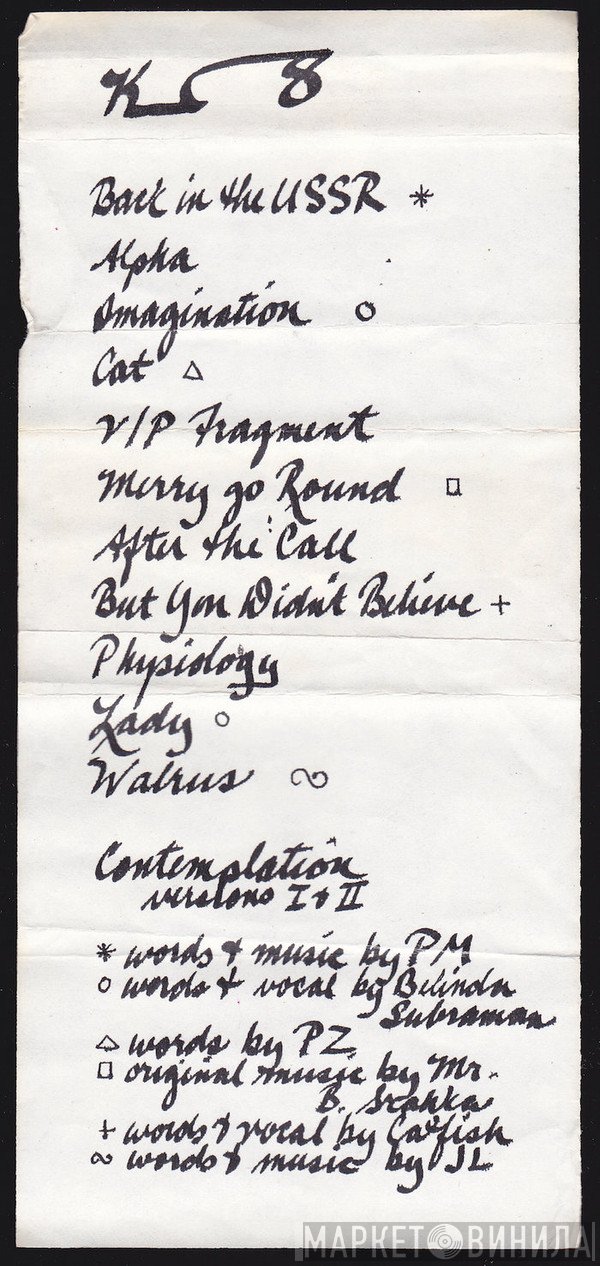 K 8
Back in the USSR *
Alpha
Imagination o
Cat △
V/P Fragment
Merry go Round □
After the Call
But You Didn't Believe +
Physiology
Lady o
Walrus ∾
Contemplation
versions I & II
* words & music by PM
o words & vocal by Belinda
Subraman
△ words by PZ
□ original music by Mr.
B.
+ words & vocal by Catfish
∾ words & music by JL
МАРКЕТ ВИНИЛА